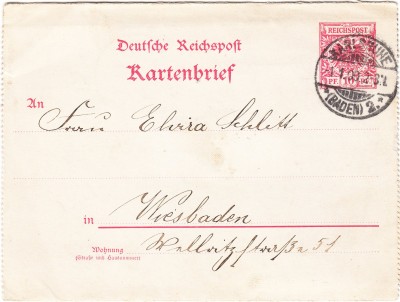 REICHSPOST
Deutsche Reichspost
Kartenbrief
KARLSRUHE
(BADEN) 2.
PF 10 PF
An
Frau Elvira Schlitt
in Wiesbaden
Wohnung
(Straße und Hausnummer)
Wellritzstraße 51